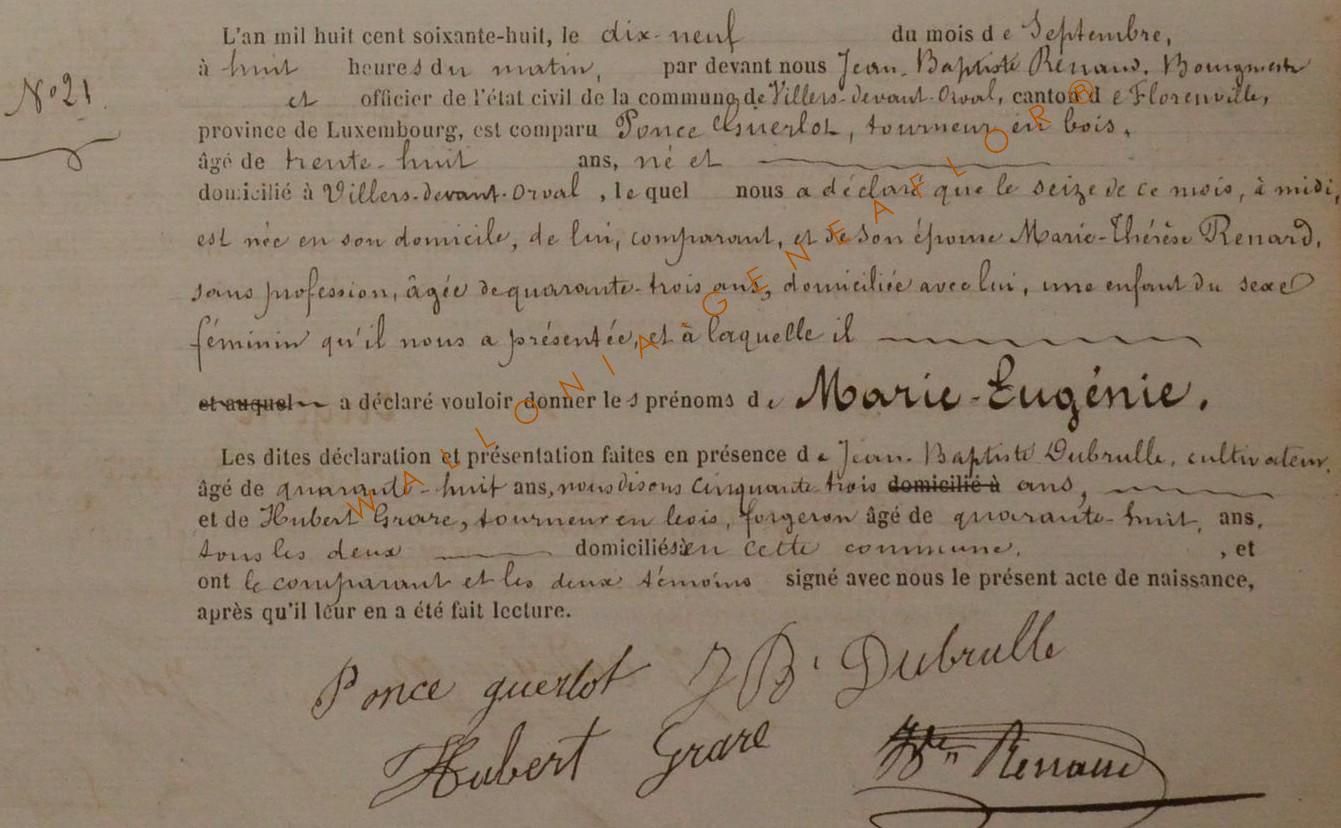 L'an mil huit cent soixante-huit, le dix-neuf du mois de Septembre,
à huit heures du matin, par devant nous Jean-Baptiste Renaud, Bourgmestre
N° 21.
et officier de l'état civil de la commune de Villers-devant-Orval, canton de Florenville,
province de Luxembourg, est comparu Ponce Guerlot, tourneur en bois,
âgé de trente-huit ans, né et
domicilié à Villers-devant-Orval, lequel nous a déclaré que le seize de ce mois, à midi,
est née en son domicile, de lui, comparant, et de son épouse Marie-Thérèse Renard,
sans profession, âgée de quarante-trois ans, domiciliée avec lui, une enfant du sexe
féminin qu'il nous a présentée, et à laquelle il
et auquel a déclaré vouloir donner les prénoms de Marie-Eugénie.
Les dites déclaration et présentation faites en présence de Jean-Baptiste Dubrulle, cultivateur,
âgé de quarante-huit ans, nous disons cinquante trois domicilié à ans,
et de Hubert Grare, tourneur en bois, forgeron âgé de quarante-huit ans,
tous les deux domiciliés en cette commune, , et
ont le comparant et les deux témoins signé avec nous le présent acte de naissance,
après qu'il leur en a été fait lecture.
Ponce guerlot J B Dubrulle
Hubert Grare Renaud
WALLONIA GENEAFLOR ®